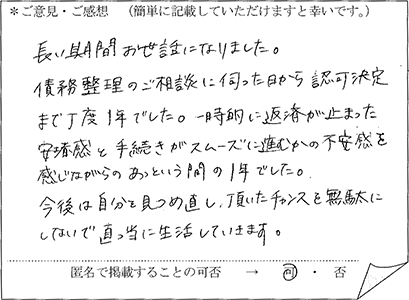 ＊ご意見・ご感想　（簡単に記載していただけますと幸いです。）
長い期間お世話になりました。
債務整理のご相談に伺った日から認可決定
まで丁度1年でした。一時的に返済が止まった
安猪感と手続きがスムーズに進むかの不安感を
感じながらのあっという間の1年でした。
今後は自分を見つめ直し、頂いたチャンスを無駄に
しないで真っ当に生活していきます。
匿名で掲載することの可否　→　可・否